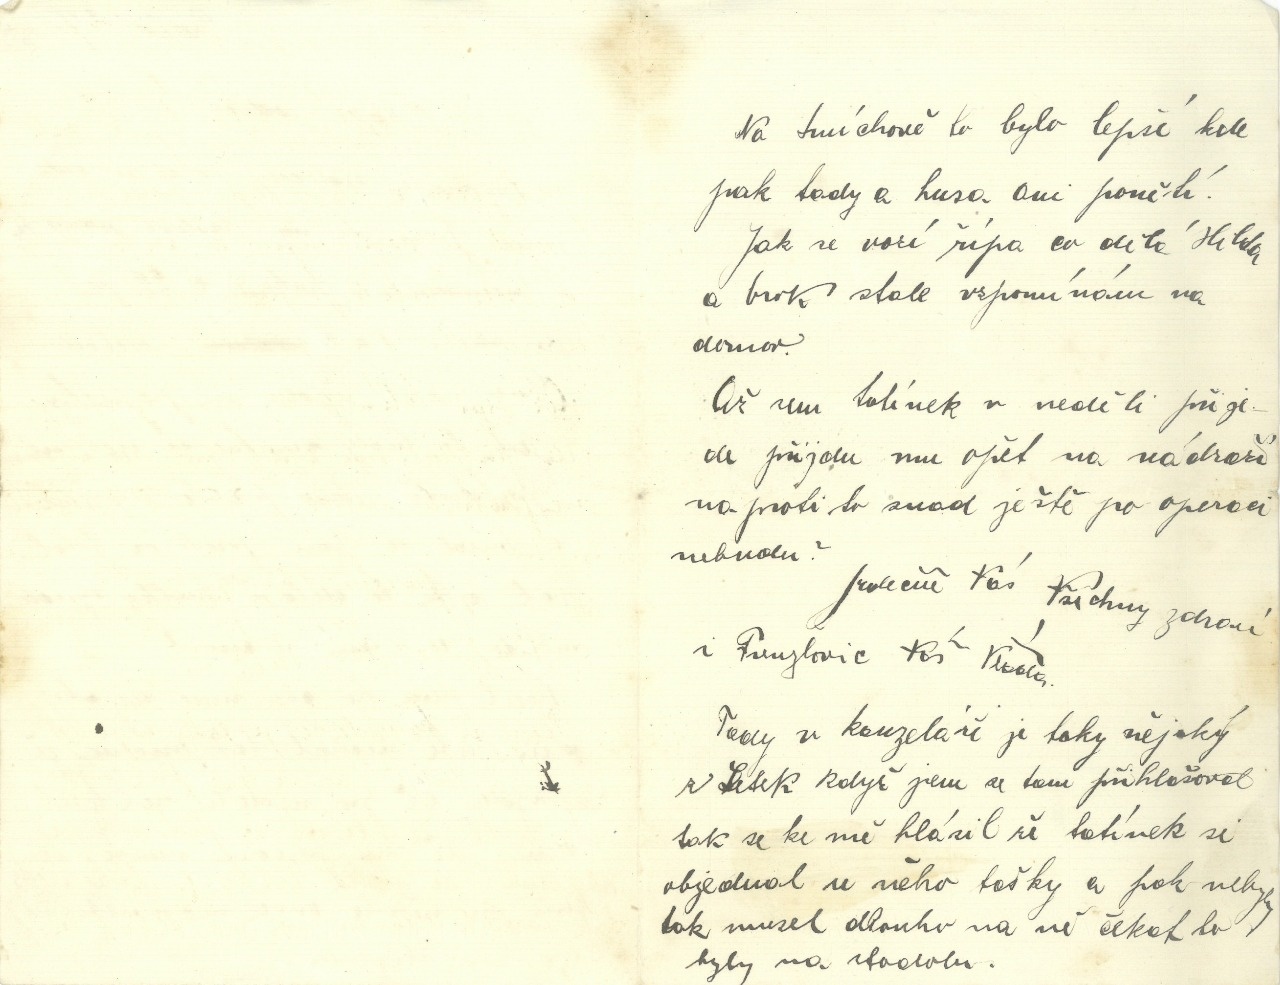 Na Smíchově to bylo lepší kde
pak tady a husa ani ponětí.
Jak se vozí řípa co dělá Hilda
a brok stále vzpomínám na
domov.
Až sem tatínek v neděli přije-
de přijdu mu opět na nádraží
na proti to snad ještě po operaci
nebudu?
Srdečně Vás Všechny zdraví
i Váš Vláďa.
Tady v kanzeláři je taky nějaký
z Letek když jsem se tam přihlašoval
tak se ke mě hlásil že tatínek si
objednal u něho tašky a pak nebyly
tak musel dlouho na ně čekat to
byly na stodolu.